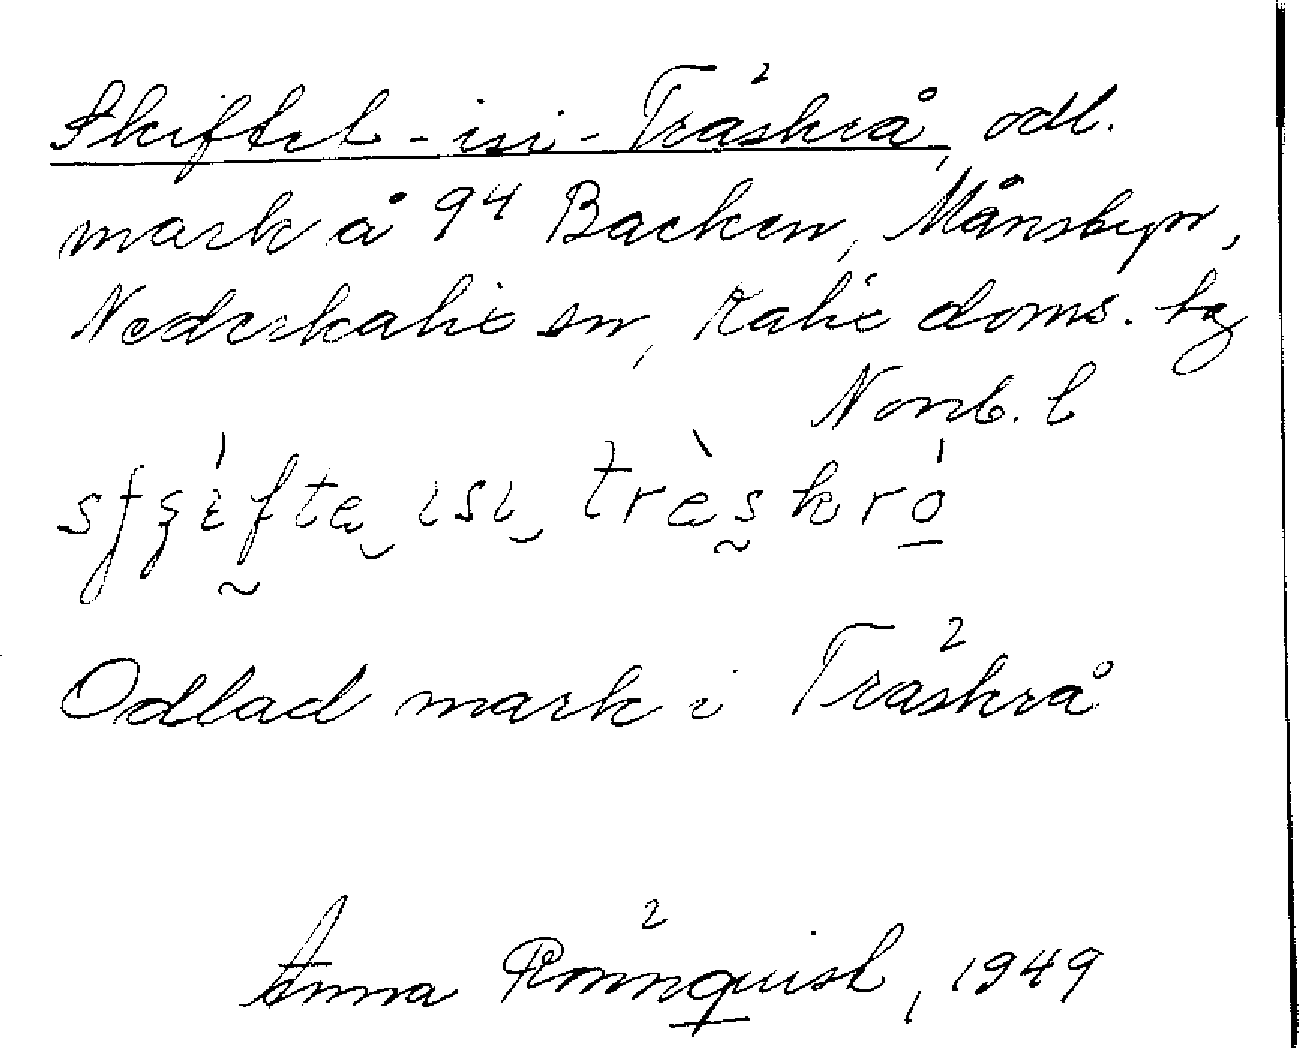 Skiftet-isi-Träskrå, odl.
mark å 9⁴ Backen, Månsbyn,
Nederkalix sn, Kalix doms. tg
Norrb. l
Odlad mark i Träskrå
Anna Rönnquist, 1949